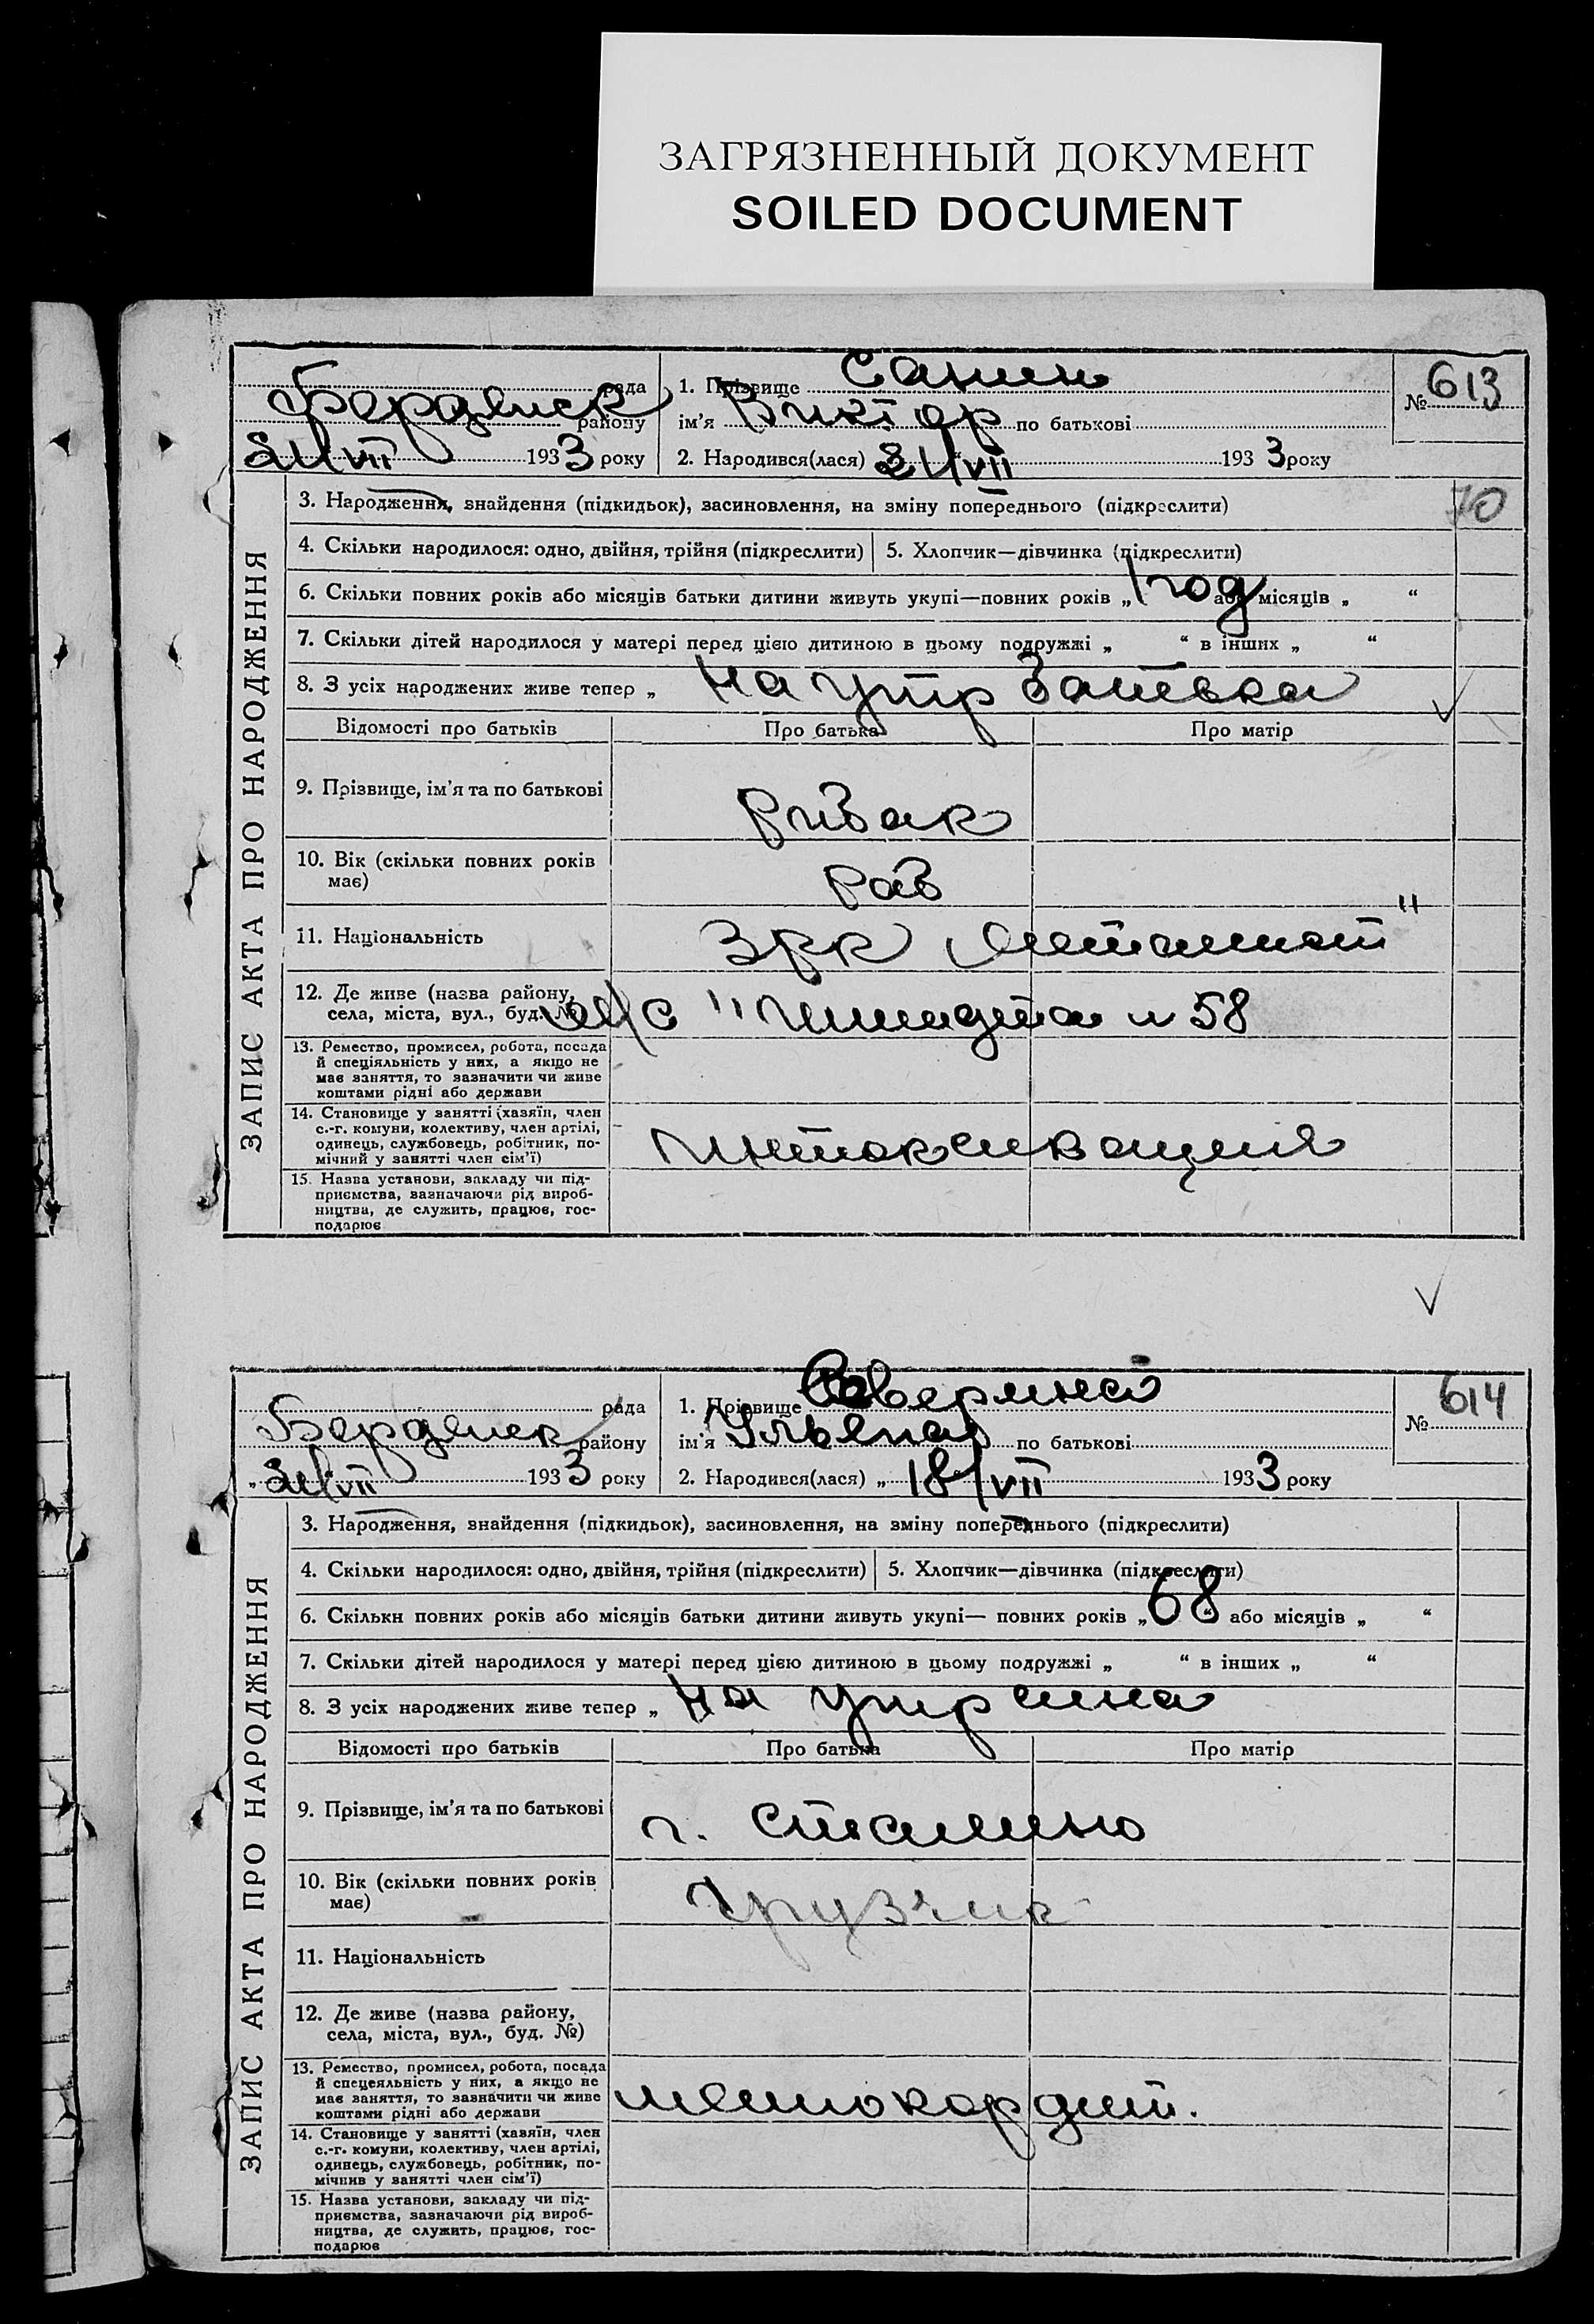 ЗАГРЯЗНЕННЫЙ ДОКУМЕНТ
SOILED DOCUMENT
рада
Бердянск району
21/VII 1933 року
1. Прізвище Санин
ім'я Виктор по батькові
2. Народився(лася) 21/VII 1933 року
№ 613
70
ЗАПИС АКТА ПРО НАРОДЖЕННЯ
3. Народження, знайдення (підкидьок), засиновлення, на зміну попереднього (підкреслити)
4. Скільки народилося: одно, двійня, трійня (підкреслити)
5. Хлопчик—дівчинка (підкреслити)
6. Скільки повних років або місяців батьки дитини живуть укупі—повних років „ 1 год або місяців „ “
7. Скільки дітей народилося у матері перед цією дитиною в цьому подружжі „ “ в інших „ “
8. З усіх народжених живе тепер „ на утр батька
Відомості про батьків
Про батька
Про матір
9. Прізвище, ім'я та по батькові
рибак
10. Вік (скільки повних років має)
раб
11. Національність
12. Де живе (назва району, села, міста, вул., буд. №)
58
13. Ремество, промисел, робота, посада й спеціяльність у них, а якщо не має заняття, то зазначити чи живе коштами рідні або держави
14. Становище у занятті (хазяїн, член с.-г. комуни, колективу, член артілі, одинець, службовець, робітник, помічний у занятті член сім'ї)
интоксикация
15. Назва установи, закладу чи підприємства, зазначаючи рід виробництва, де служить, працює, господарює
рада
Бердянск району
„ 21/VII 1933 року
1. Прізвище Аверина
ім'я Ульяна по батькові
2. Народився(лася) „ 18/VII 1933 року
№ 614
ЗАПИС АКТА ПРО НАРОДЖЕННЯ
3. Народження, знайдення (підкидьок), засиновлення, на зміну попереднього (підкреслити)
4. Скільки народилося: одно, двійня, трійня (підкреслити)
5. Хлопчик—дівчинка (підкреслити)
6. Скількн повних років або місяців батьки дитини живуть укупі— повних років „ 68 “ або місяців „ “
7. Скільки дітей народилося у матері перед цією дитиною в цьому подружжі „ “ в інших „ “
8. З усіх народжених живе тепер „ на утр сина
Відомості про батьків
Про батька
Про матір
9. Прізвище, ім'я та по батькові
г. Сталино
10. Вік (скільки повних років має)
грузчик
11. Національність
12. Де живе (назва району, села, міста, вул., буд. №)
13. Ремество, промисел, робота, посада й спецеяльність у них, а якщо не має заняття, то зазначити чи живе коштами рідні або держави
миокардит.
14. Становище у занятті (хазяїн, член с.-г. комуни, колективу, член артілі, одинець, службовець, робітник, помічнив у занятті член сім'ї)
15. Назва установи, закладу чи підприємства, зазначаючи рід виробництва, де служить, працює, господарює